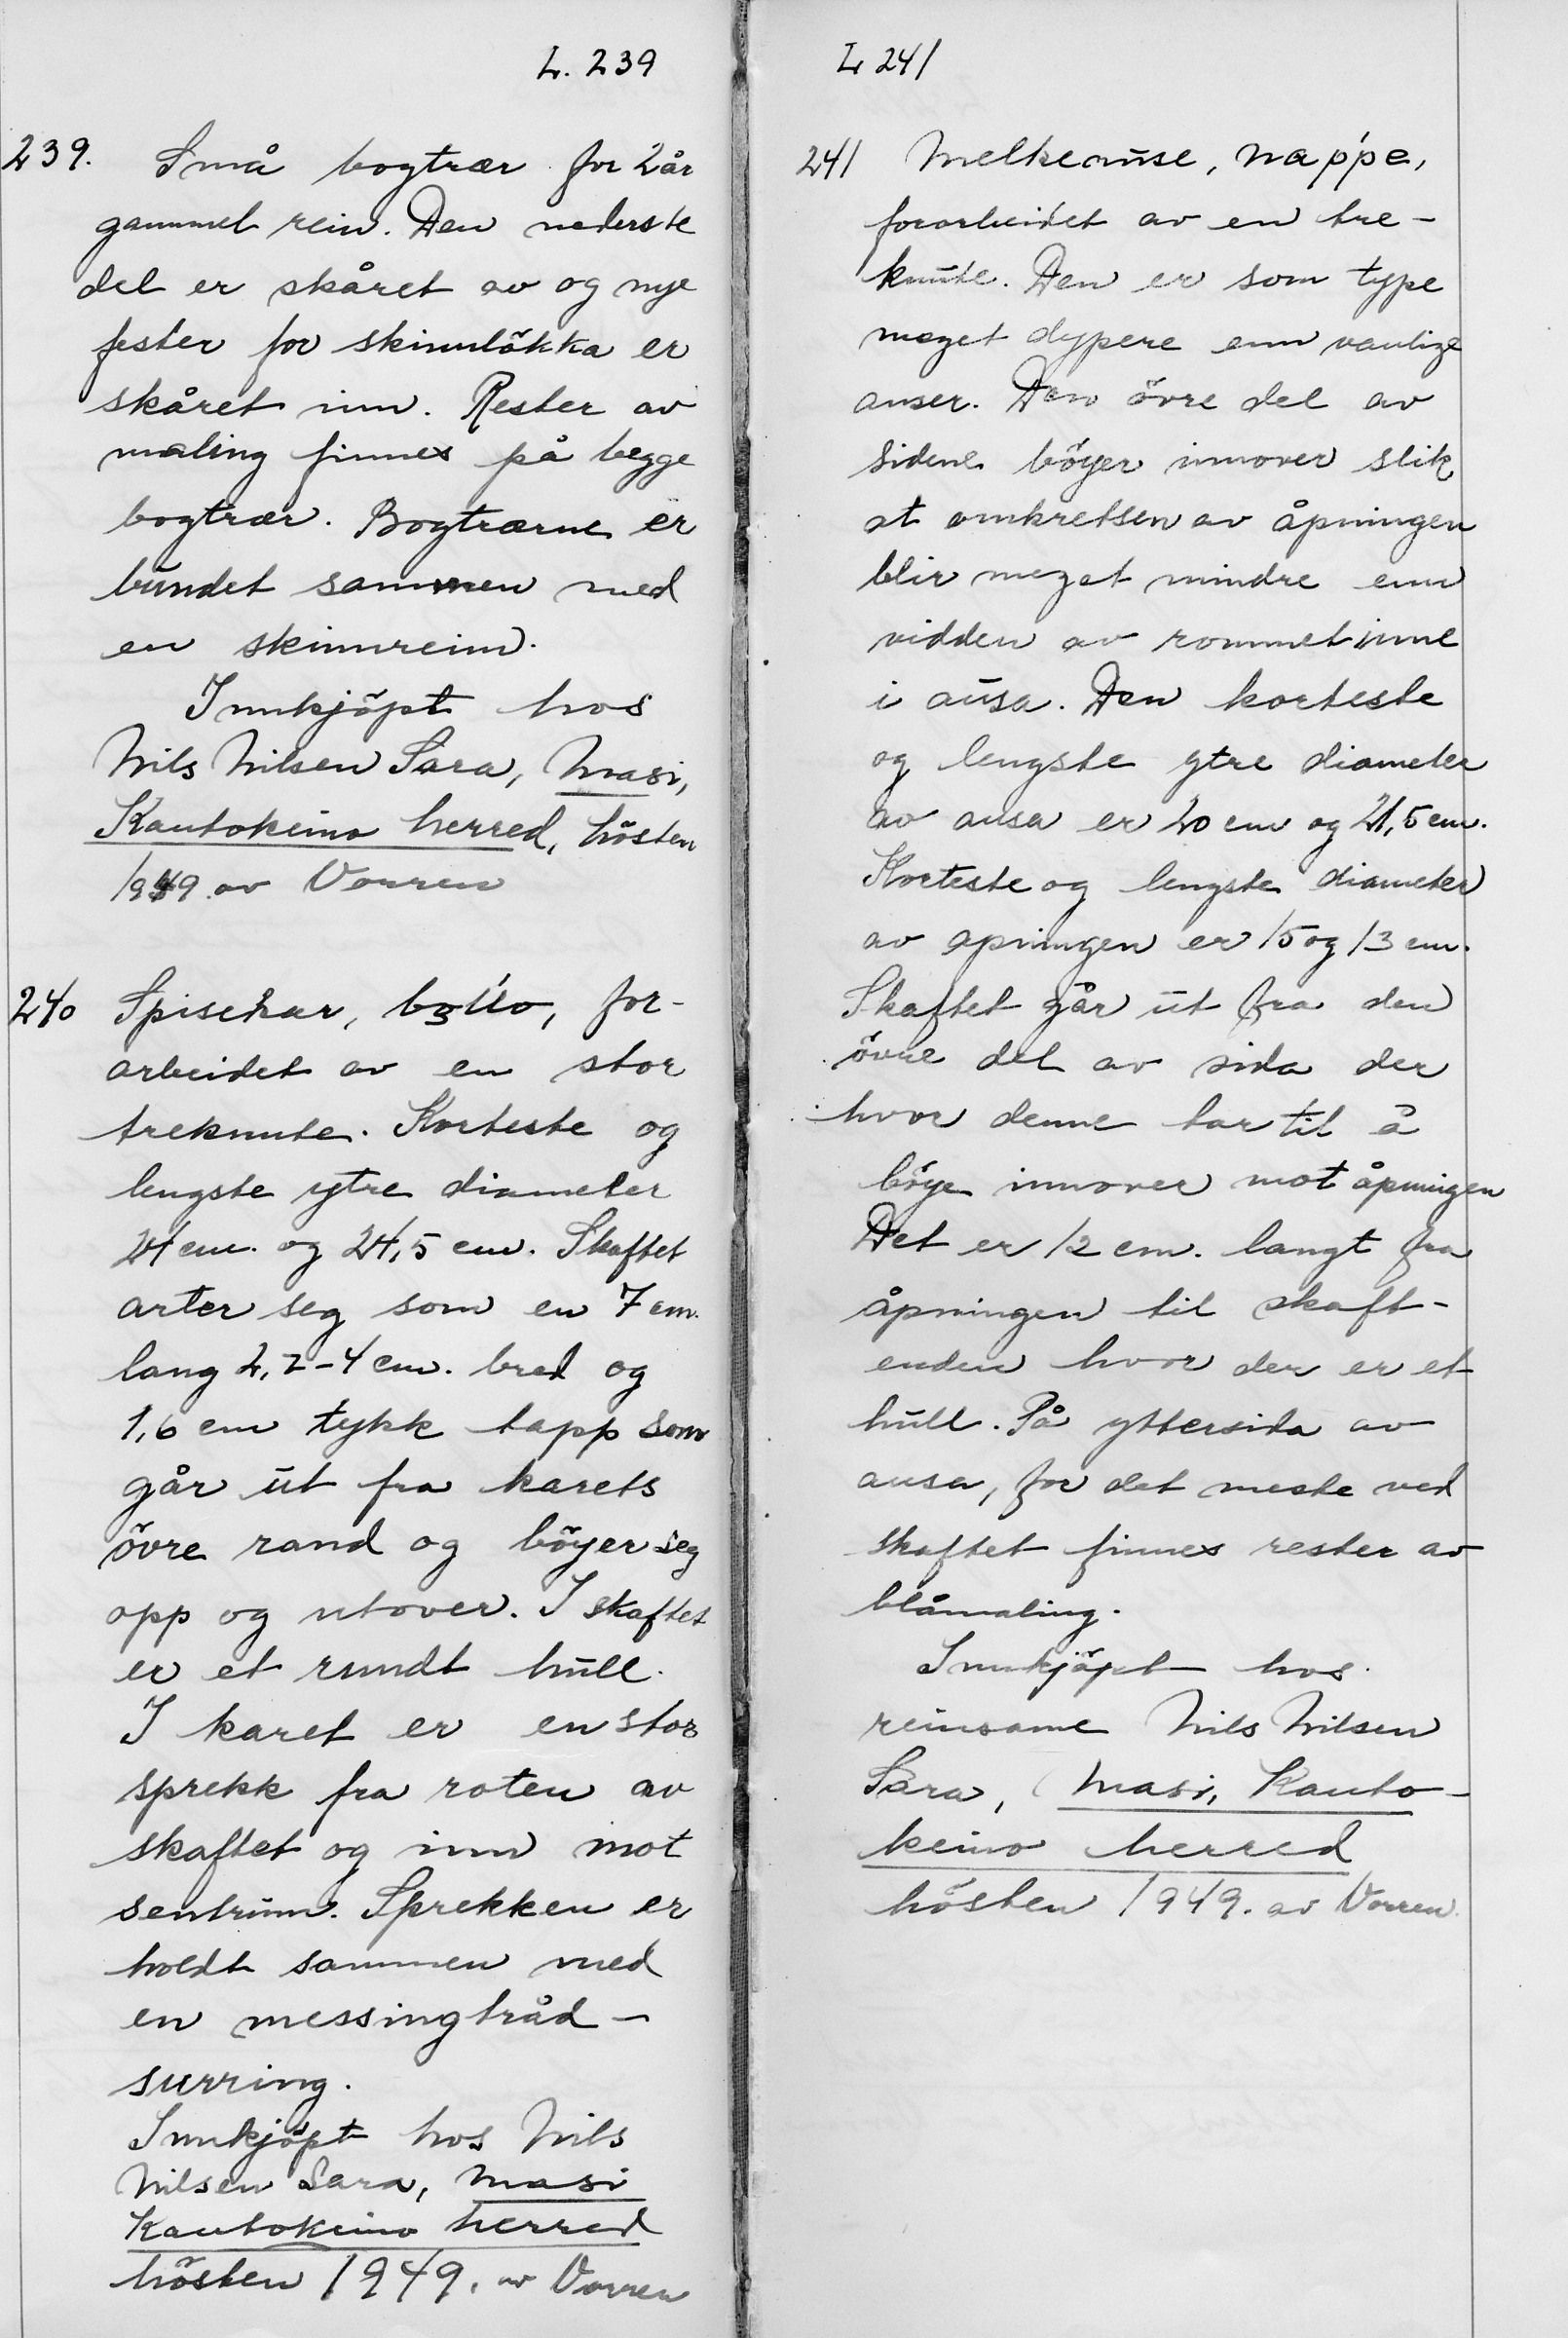 L. 239
239. Små bogtrær for 2 år
gammel rein. Den nederste
del er skåret av og nye
fester for skinnlökka er
skåret inn. Rester av
maling finnes på begge
bogtrær. Bogtrærne er
bundet sammen med
en skinnreim.
Innkjöpt hos
Nils Nilsen Sara, Masi,
Kautokeino herred, hösten
1949. av Vorren
240 Spisekar, for-
arbeidet av en stor
treknute. Korteste og
lengste ytre diameter
cm. og 24,5 cm. Skaftet
arter seg som en 7 cm.
lang 2,2-4 cm. bred og
1,6 cm tykk tapp som
går ut fra karets
övre rand og böyer seg
opp og utover. I skaftet
er et rundt hull.
I karet er en stor
sprekk fra roten av
skaftet og inn mot
sentrum. Sprekken er
holdt sammen med
en messingtråd-
surring.
Innkjöpt hos Nils
Nilsen Sara, Masi
Kautokeino herred
hösten 1949. av Vorren
L 241
241 Melkeause, nap'pe,
forarbeidet av en tre-
knute. Den er som type
meget dypere enn vanlige
auser. Den övre del av
sidene böyer innover slik
at omkretsen av åpningen
blir meget mindre enn
vidden av rommet inne
i ausa. Den korteste
og lengste ytre diameter
av ausa er 20 cm og 21,5 cm.
Korteste og lengste diameter
av apningen er 15 og 13 cm.
Skaftet går ut fra den
övre del av sida der
hvor denne tar til å
böye innover mot åpningen
Det er 12 cm. langt fra
åpningen til skaft-
enden hvor der er et
hull. På yttersida av
ausa, for det meste ved
skaftet finnes rester av
blåmaling.
Innkjöpt hos
reinsame Nils Nilsen
Sara, Masi, Kauto-
keino herred
hösten 1949. av Vorren.